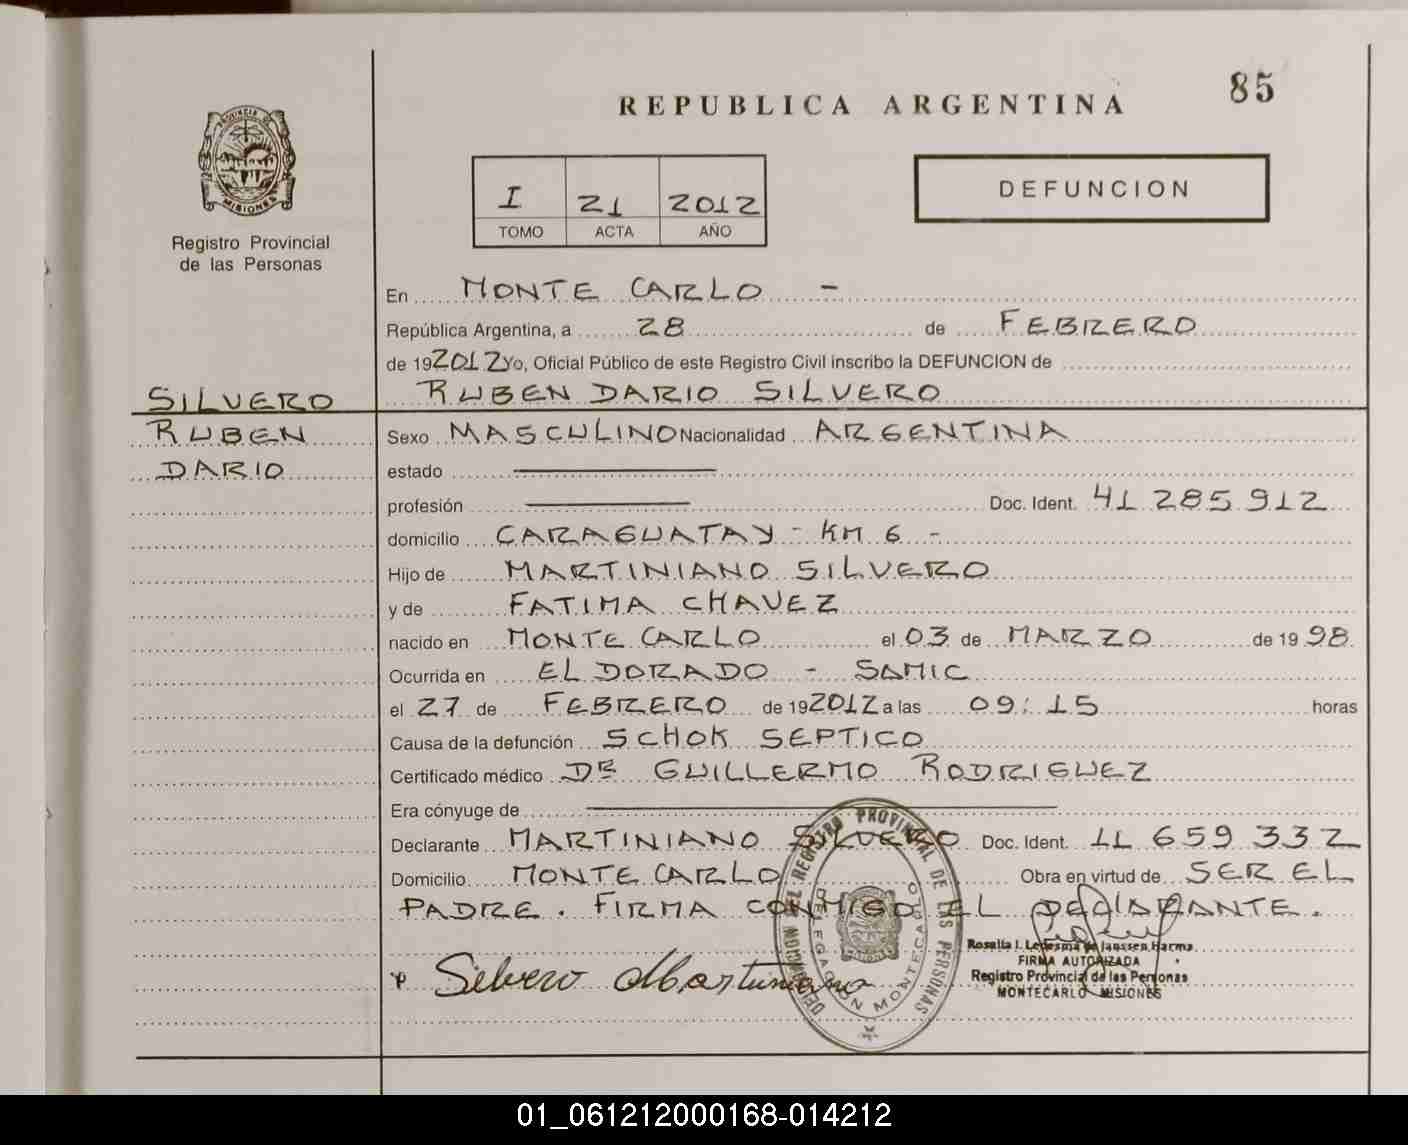 85
REPUBLICA ARGENTINA
PROVINCIA DE
MISIONES
Registro Provincial
de las Personas
DEFUNCION
I 21 2012
TOMO ACTA AÑO
En MONTE CARLO -
República Argentina, a 28 de FEBRERO
de 192012 Yo, Oficial Público de este Registro Civil inscribo la DEFUNCION de
RUBEN DARIO SILVERO
SILVERO
RUBEN
DARIO
Sexo MASCULINO Nacionalidad ARGENTINA
estado
profesión Doc. Ident. 41 285 912
domicilio CARAGUATAY - KM 6 -
Hijo de MARTINIANO SILVERO
y de FATIMA CHAVEZ
nacido en MONTE CARLO el 03 de MARZO de 1998
Ocurrida en ELDORADO - SAMIC
el 27 de FEBRERO de 192012 a las 09:15 horas
Causa de la defunción SCHOK SEPTICO
Certificado médico DR GUILLERMO RODRIGUEZ
Era cónyuge de
Declarante MARTINIANO SILVERO Doc. Ident. 11 659 332
Domicilio MONTE CARLO Obra en virtud de SER EL
PADRE. FIRMA CONMIGO EL DECLARANTE.
Silvero Martiniano
DELEGACION MONTECARLO
REGISTRO PROVINCIAL DE LAS PERSONAS
Rosalia I. Ledesma de Janssen Harms
FIRMA AUTORIZADA
Registro Provincial de las Personas
MONTECARLO MISIONES
01_061212000168-014212